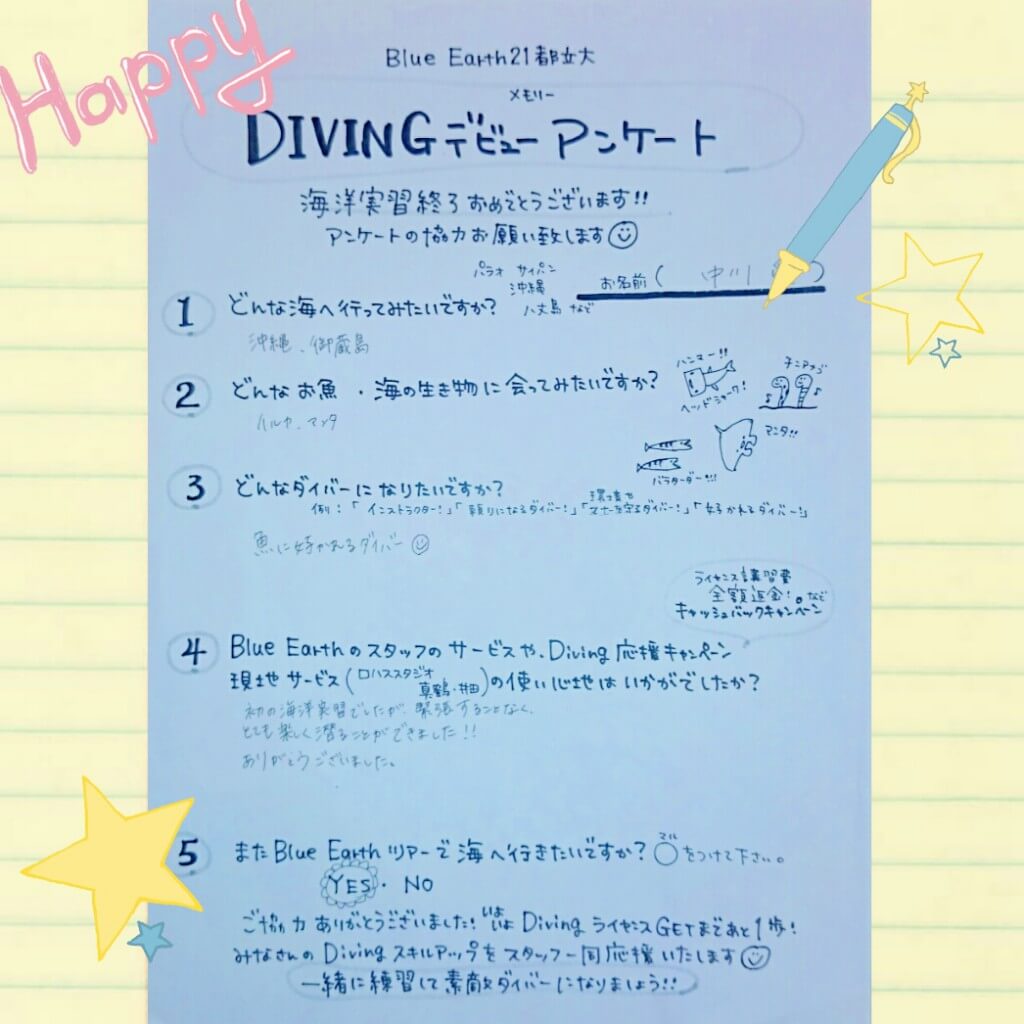 Happy
Blue Earth21都立大
メモリー
DIVINGデビューアンケート
海洋実習終了おめでとうございます!!
アンケートの協力お願い致します
お名前( 中川 )
パラオ サイパン
沖縄
八丈島 など
1 どんな海へ行ってみたいですか?
沖縄、御蔵島
2 どんなお魚・海の生き物に会ってみたいですか?
ハンマー!!
ヘッドシャーク!
チンアナゴ
マンタ!!
バラクーダー!!!
イルカ、マンタ
3 どんなダイバーになりたいですか?
例:「インストラクター!」「頼りになるダイバー!」「環境やマナーを守るダイバー!」「好かれるダイバー!」
魚に好かれるダイバー
ライセンス講習費
全額返金!。など
キャッシュバックキャンペーン
4 Blue Earthのスタッフのサービスや、Diving応援キャンペーン
現地サービス(ロハススタジオ 真鶴・井田)の使い心地はいかがでしたか?
初の海洋実習でしたが、緊張することなく、
とても楽しく潜ることができました!!
ありがとうございました。
5 またBlue Earthツアーで海へ行きたいですか?○をつけて下さい。
マル
YES・NO
ご協力ありがとうございました!いよいよDivingライセンスGETまであと1歩!
みなさんのDivingスキルアップをスタッフ一同応援いたします
一緒に練習して素敵ダイバーになりましょう!!